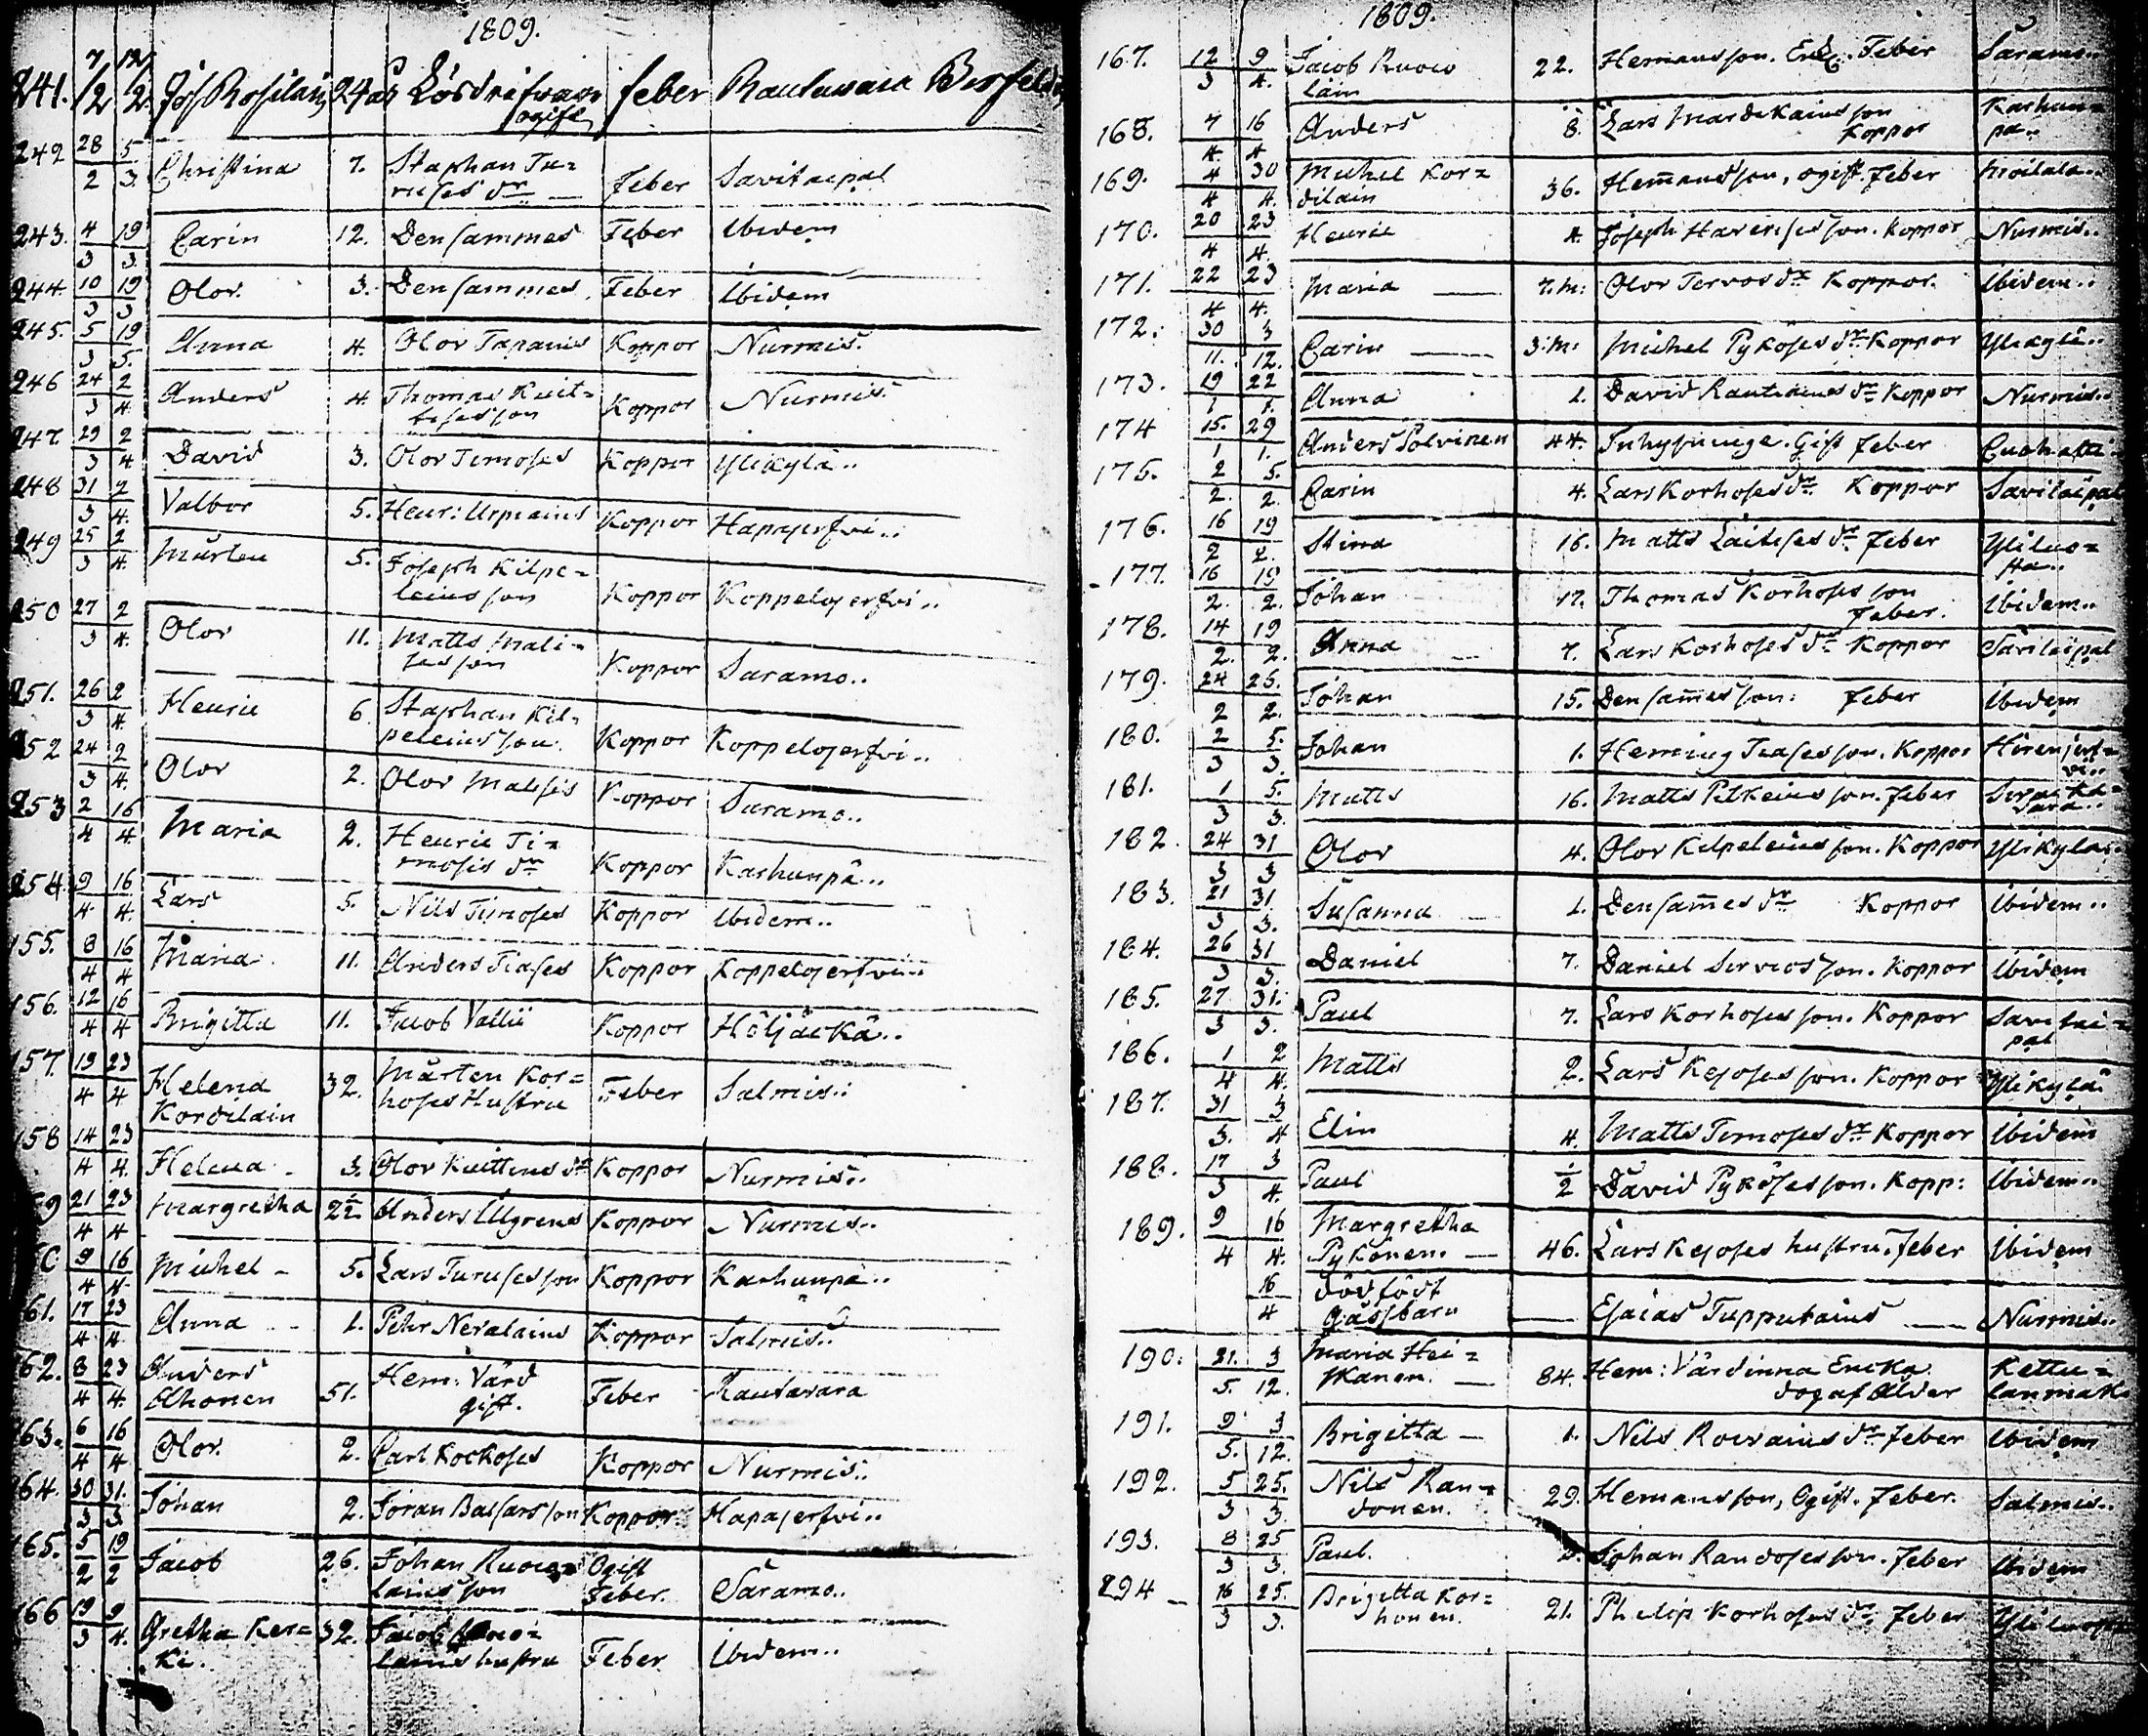 1809.
241. 7/12 12/2. Jos Rosilain, 24 år Lösdrifvare feber Rautuvara
ogift
242 28/2 5/3. Christina 7. Staphan Tu=
ruses dr — Feber Savitaipal
243. 4/3 19/3. Carin 12. Den sammes Feber Ibidem
244. 10/3 19/3 Olov. 3. Den sammes. Feber Ibidem
245. 5/3 19/5. Anna 4. Olov Tapanis Koppor Nurmis.
246 24/3 2/4 Anders 4. Thomas Kuit=
tises son Koppor Nurmis.
247 29/3 2/4 David 3. Olov Timoses Koppor Ylikylä..
248 31/3 2/4. Valbor 5. Henr: Urpiains Koppor Hapajerfvi..
249 25/3 2/4. Mårten 5. Joseph Kilpe=
leins son Koppor Koppelojerfvi..
250 27/3 2/4. Olov 11. Matts Mali=
ses son Koppor Saramo..
251. 26/3 2/4. Henric 6. Staphan Kil=
peleins son. Koppor Koppelojerfvi..
252 24/3 2/4. Olov 2. Olov Malises Koppor Saramo..
253 2/4 16/4. Maria 2. Henric Ti=
moses dr Koppor Karhunpä..
254. 9/4 16/4. Lars 5. Nils Timoses Koppor Ibidem..
155. 8/4 16/4 Maria. 11. Anders Tiases Koppor Koppelojerfvi..
156. 12/4 16/4 Brigitta 11. Jacob Vallii Koppor Höljäckä..
157. 19/4 23/4 Helena
Kordilain 32. Mårten Kor=
hoses Hustru Feber Salmis..
158 14/4 23/4. Helena - 3. Olov Kuittins dr Koppor Nurmis..
59 21/4 23/4 Margretha 2½ Anders Ulgrens Koppor Nurmis..
9/4 16/4. Michel - 5. Lars Turuses son Koppor Karhunpä..
61. 17/4 23/4 Anna - 1. Pehr Nevalains Koppor Salmis..
162. 8/4 23/4. Anders
Ahonen 51. Hem: Värd
gift. Feber Rautavara
163. 6/4 16/4 Olov. 2. Carl Kockoses Koppor Nurmis..
164. 30/3 31/3. Johan 2. Jöran Balsars son Koppor Hapajerfvi..
165. 5/2 19/2 Jacob 26. Johan Ruova
lains son Ogift
Feber. Saramo..
166 19/3 9/4. Gretha Ker=
ki.. 32. Jacob Ruova=
lains hustru Feber Ibidem..
1809.
167. 12/3 9/4. Jacob Ruova
lain 22. Hemansson. Enkl. Feber Saramo..
168. 7/4. 16/4 Anders 8. Lars Mardikains son
Koppor Karhun=
pä..
169. 4/4 30/4. Michel Kor=
dilain 36. Hemansson, ogift. Feber Moilala..
170. 20/4 23/4. Henric 4. Joseph Havinses son. Koppor Nurmis..
171. 22/4 23/4. Maria — 7. m: Olov Tervos dr Koppor. Ibidem..
172. 30/11. 3/12. Carin — 3. m: Michel Pyköses dr Koppor Ylikylä..
173. 19/1 22/1. Anna 1. David Rautiains dr Koppor Nurmis..
174 15/1 29/1. Anders Polvinen 44. Inhysinge. Gift Feber
175. 2/2. 5/2. Carin 4. Lars Korhoses dr. Koppor Savitaipal
176. 16/2 19/2. Stina 16. Matts Laitises dr Feber Yliluo=
sta..
177. 16/2. 19/2. Johan 17. Thomas Korhoses son
Feber. Ibidem..
178. 14/2. 19/2. Anna — 7. Lars Korhoses dr Koppor Savitaipal
179. 24/2 25/2. Johan 15. Den sammes son: Feber Ibidem
180. 2/3 5/3. Johan 1. Heming Tiases son. Koppor Hörenjerf=
vi..
181. 1/3 5/3. Matts 16. Matts Pitkeins son. Feber
182. 24/3 31/3 Olov 4. Olov Kilpeleins son. Koppor Ylikylä..
183. 21/3 31/3. Susanna — 1. Den sammes dr Koppor Ibidem..
184. 26/3 31/3. Daniel 7. Daniel Servios son. Koppor Ibidem
185. 27/3 31/3. Paul 7. Lars Korhoses son. Koppor Savitai=
pal
186. 1/4 2/4. Matts 2. Lars Kejoses son. Koppor Ylikylä
187. 31/3. 3/4 Elin 4. Matts Timoses dr Koppor Ibidem
188. 17/3 3/4. Paul ½ David Pyköses son. Kopp: Ibidem..
189. 9/4 16/4. Margretha
Pykönen. — 46. Lars Kejoses hustru. Feber Ibidem
16/4 dödfödt
Gåssbarn — Esaias Tupputains — Nurmis..
190. 21/5. 3/12. Maria Hei=
skanen. — 84. Hem: Värdinna Encka
dog af Ålder Kettu=
lanmäk
191. 9/5. 3/12. Brigitta — 1. Nils Rovains dr Feber Ibidem
192. 5/3 25/3. Nils Ran=
donen. 29. Hemansson, Ogift. Feber. Salmis..
193. 8/3 25/3. Paul. Johan Randoses son. Feber Ibidem
294 — 16/3 25/3. Brigitta Kor=
honen. 21. Philip Korhoses dr. Feber Yliluosta